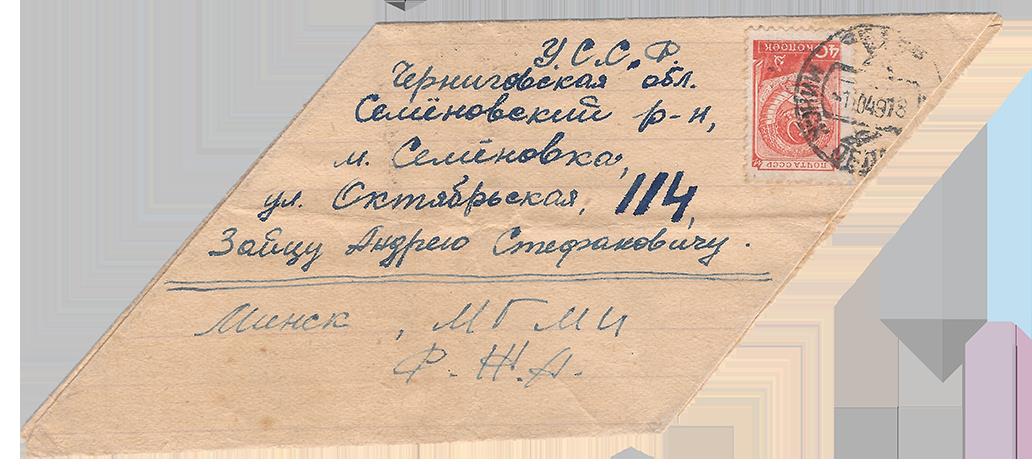 У.С.С.Р.
Черниговская обл.
Семёновский р-н,
м. Семёновка,
ул. Октябрьская, 114,
Зайцу Андрею Стефановичу.
Минск, МГМИ
Ф.Ж.А.
40 КОПЕЕК
ПОЧТА СССР
МИНСК